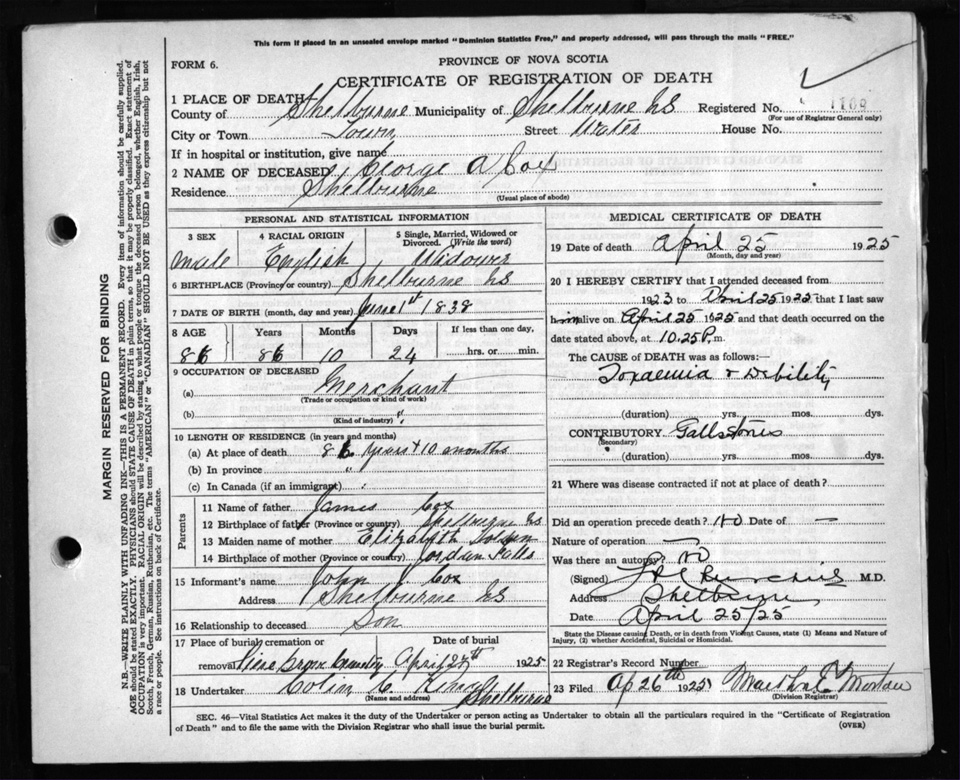 This form if placed in an unsealed envelope marked "Dominion Statistics Free," and property addressed, will pass through the mails "FREE."
FORM 6.
PROVINCE OF NOVA SCOTIA
CERTIFICATE OF REGISTRATION OF DEATH
1 PLACE OF DEATH
County of Shelburne Municipality of Shelburne NS Registered No. 1109
(For use of Registrar General only)
City or Town Town Street Water House No.
If in hospital or institution, give name
2 NAME OF DECEASED George A Cox
Residence Shelburne
(Usual place of abode)
MARGIN RESERVED FOR BINDING
N.B.—WRITE PLAINLY WITH UNFADING INK—THIS IS A PERMANENT RECORD. Every item of information should be carefully supplied.
AGE should be stated EXACTLY. PHYSICIANS should STATE CAUSE OF DEATH in plain terms, so that it may be properly classified. Exact statement of
OCCUPATION is very important. RACIAL ORIGIN will be described by stating to what people or tongue the deceased person belonged, whether English, Irish,
Scotch, French, German, Russian, Ruthenian, etc. The terms "AMERICAN" or "CANADIAN" SHOULD NOT BE USED as they express citizenship but not
a race or people. See instructions on back of Certificate.
PERSONAL AND STATISTICAL INFORMATION
3 SEX 4 RACIAL ORIGIN 5 Single, Married, Widowed or Divorced. (Write the word)
male English Widower
6 BIRTHPLACE (Province or country) Shelburne NS
7 DATE OF BIRTH (month, day and year) June 1st 1838
8 AGE Years Months Days If less than one day,
86 86 10 24 hrs. or min.
9 OCCUPATION OF DECEASED
(a) Merchant
(Trade or occupation or kind of work)
(b)
(Kind of industry)
10 LENGTH OF RESIDENCE (in years and months)
(a) At place of death 86 years + 10 months
(b) In province "
(c) In Canada (if an immigrant)
Parents
11 Name of father James Cox
12 Birthplace of father (Province or country) Shelburne NS
13 Maiden name of mother Elizabeth
14 Birthplace of mother (Province or country) Jordan Falls
15 Informant's name John J. Cox
Address Shelburne NS
16 Relationship to deceased Son
17 Place of burial, cremation or Date of burial
removal Pine Grove Cemetery April 27th 1925
18 Undertaker Colin C. King Shelburne
(Name and address)
MEDICAL CERTIFICATE OF DEATH
19 Date of death April 25 1925
(Month, day and year)
20 I HEREBY CERTIFY that I attended deceased from
1923 to April 25 1925 that I last saw
him alive on April 25 1925 and that death occurred on the
date stated above, at 10.25 P.m.
The CAUSE OF DEATH was as follows:—
Toxaemia & Debility
(duration) yrs. mos. dys.
CONTRIBUTORY Gallstones
(Secondary)
(duration) yrs. mos. dys.
21 Where was disease contracted if not at place of death?
Did an operation precede death? No Date of —
Nature of operation —
Was there an autopsy? No
(Signed) M.D.
Address Shelburne
Date April 25/25
State the Disease causing Death, or in death from Violent Causes, state (1) Means and Nature of
Injury, (2) whether Accidental, Suicidal or Homicidal.
22 Registrar's Record Number
23 Filed Ap 26th 1925 Martha
(Division Registrar)
SEC. 46—Vital Statistics Act makes it the duty of the Undertaker or person acting as Undertaker to obtain all the particulars required in the "Certificate of Registration
of Death" and to file the same with the Division Registrar who shall issue the burial permit. (OVER)